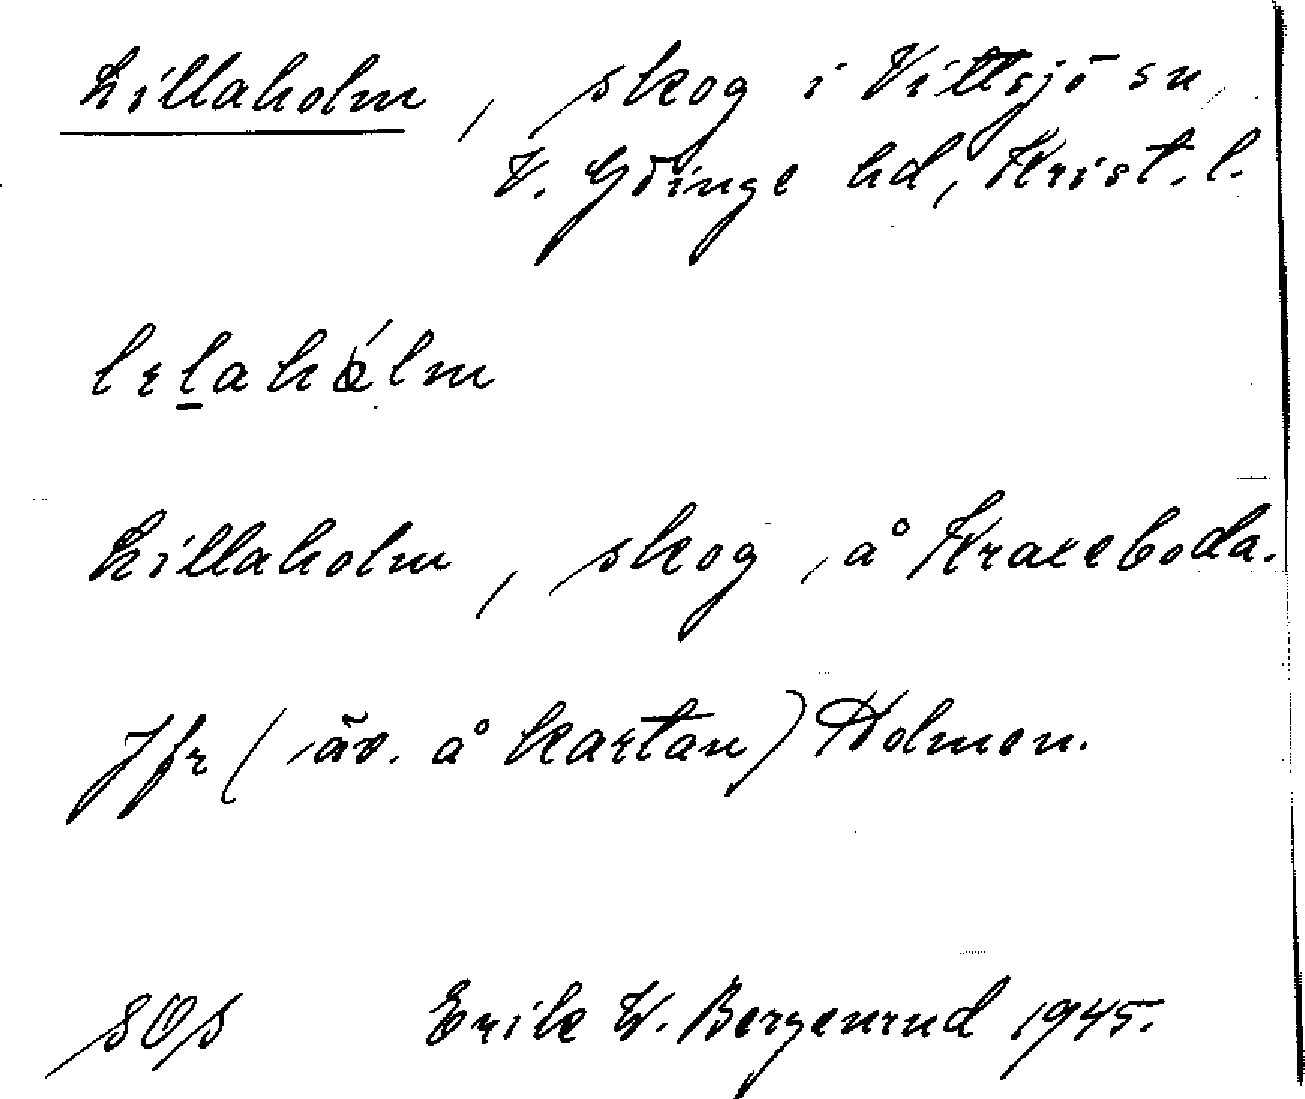 Lillaholm, skog i Vittsjö sn,
V. Göinge hd, Krist. l.
lılahólm
Lillaholm, skog, å Kraxeboda.
Jfr (äv. å kartan) Holmen.
SOS Erik W. Bergenrud 1945.